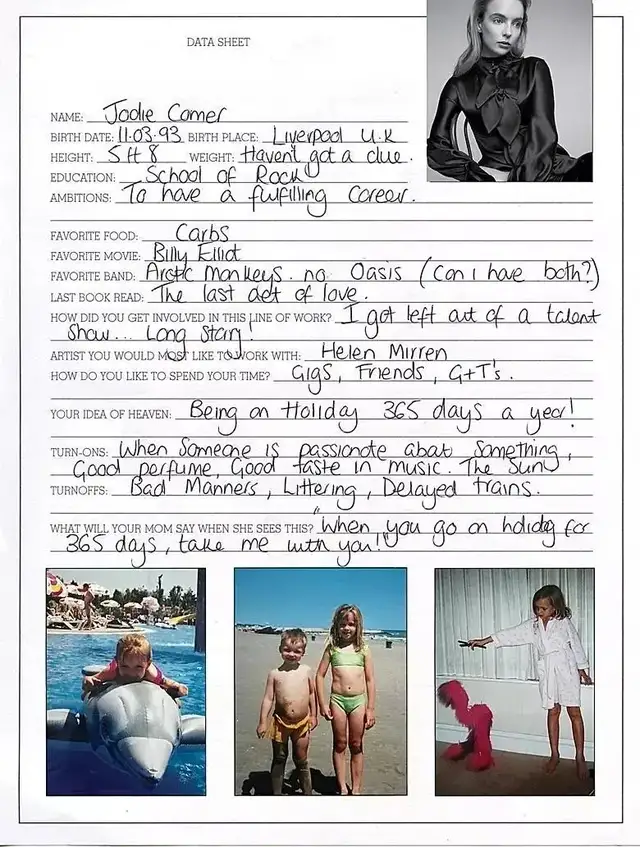 DATA SHEET
NAME: Jodie Comer
BIRTH DATE: 11.03.93 BIRTH PLACE: Liverpool U.K
HEIGHT: 5ft 8 WEIGHT: Haven't got a clue.
EDUCATION: School of Rock
AMBITIONS: To have a fulfilling career.
FAVORITE FOOD: Carbs
FAVORITE MOVIE: Billy Elliot
FAVORITE BAND: Arctic Monkeys. no Oasis (Can I have both?)
LAST BOOK READ: The last act of love.
HOW DID YOU GET INVOLVED IN THIS LINE OF WORK? I got left out of a talent
show... Long Story!
ARTIST YOU WOULD MOST LIKE TO WORK WITH: Helen Mirren
HOW DO YOU LIKE TO SPEND YOUR TIME? Gigs, Friends, G+T's.
YOUR IDEA OF HEAVEN: Being on Holiday 365 days a year!
TURN-ONS: When someone is passionate about something,
Good perfume, Good taste in music. The Sun
TURNOFFS: Bad Manners, Littering, Delayed trains.
WHAT WILL YOUR MOM SAY WHEN SHE SEES THIS? "When you go on holiday for
365 days, take me with you!"